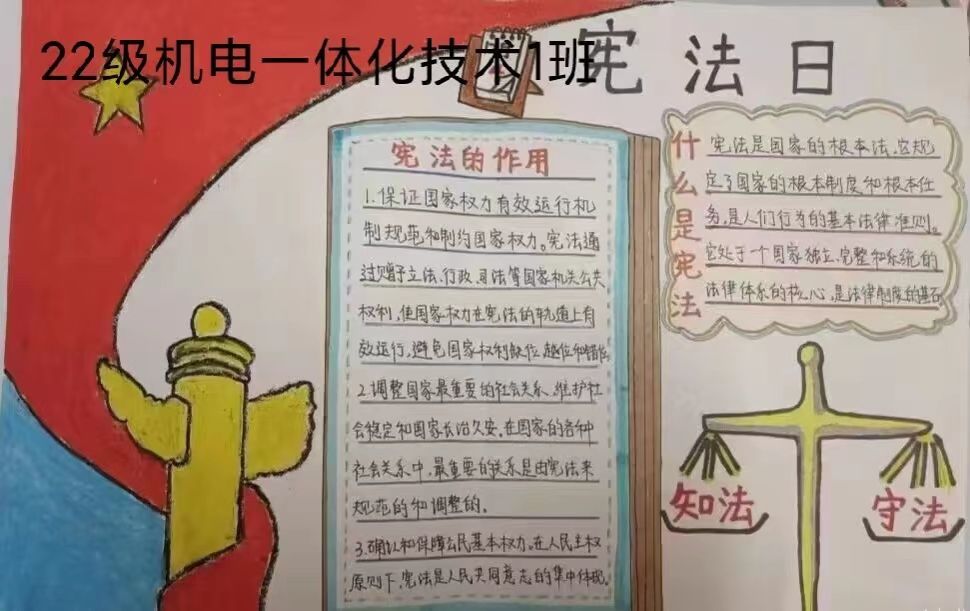 22级机电一体化技术1班
宪法日
宪法的作用
1.保证国家权力有效运行机
制规范和制约国家权力。宪法通
过赠予立法、行政、司法等国家机关公共
权利，使国家权力在宪法的轨道上有
效运行，避免国家权利缺位、越位和错位
2.调整国家最重要的社会关系、维护社
会稳定和国家长治久安，在国家的各种
社会关系中，最重要的关系是由宪法来
规范的和调整的。
3.确认和保障公民基本权力。在人民主权
原则下，宪法是人民共同意志的集中体现。
什么是宪法
宪法是国家的根本法，它规
定了国家的根本制度和根本任
务，是人们行为的基本法律准则。
它处于一个国家独立、完整和系统的
法律体系的核心，是法律制度的基石
知法
守法